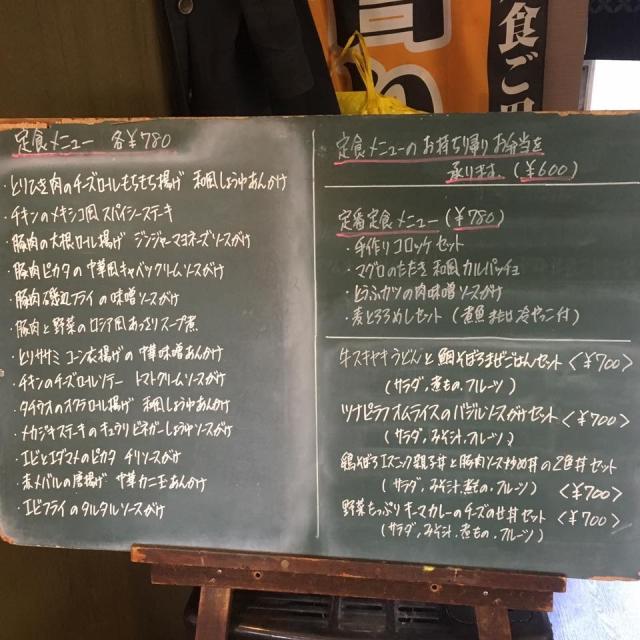 定食メニュー 各¥780
・とりひき肉のチーズロールもちもち揚げ 和風しょうゆあんかけ
・チキンのメキシコ風スパイシーステーキ
・豚肉の大根ロール揚げ ジンジャーマヨネーズソースがけ
・豚肉ピカタの中華風キャベツクリームソースがけ
・豚肉磯辺フライの味噌ソースがけ
・豚肉と野菜のロシア風あっさりスープ煮
・とりササミコーン衣揚げの中華味噌あんかけ
・チキンのチーズロールソテー トマトクリームソースがけ
・タチウオのオクラロール揚げ 和風しょうゆあんかけ
・メカジキステーキのキュウリビネガーしょうゆソースがけ
・エビとエダマメのピカタ チリソースがけ
・赤メバルの唐揚げ 中華カニ玉あんかけ
・エビフライのタルタルソースがけ
定食メニューのお持ち帰りお弁当を
承ります。(¥600)
定番定食メニュー(¥780)
・手作りコロッケセット
・マグロのたたき 和風カルパッチョ
・とうふカツの肉味噌ソースがけ
・麦とろろめしセット(煮魚または冷やっこ付)
牛スキヤキうどんと鯛そぼろまぜごはんセット<¥700>
(サラダ,煮もの,フルーツ)
ツナピラフオムライスのバジルソースがけセット<¥700>
(サラダ,みそ汁,フルーツ)
鶏そぼろエスニック親子丼と豚肉ソース炒め丼の2色丼セット
(サラダ,みそ汁,煮もの,フルーツ) <¥700>
野菜たっぷりキーマカレーのチーズのせ丼セット<¥700>
(サラダ,みそ汁,煮もの,フルーツ)
食ご